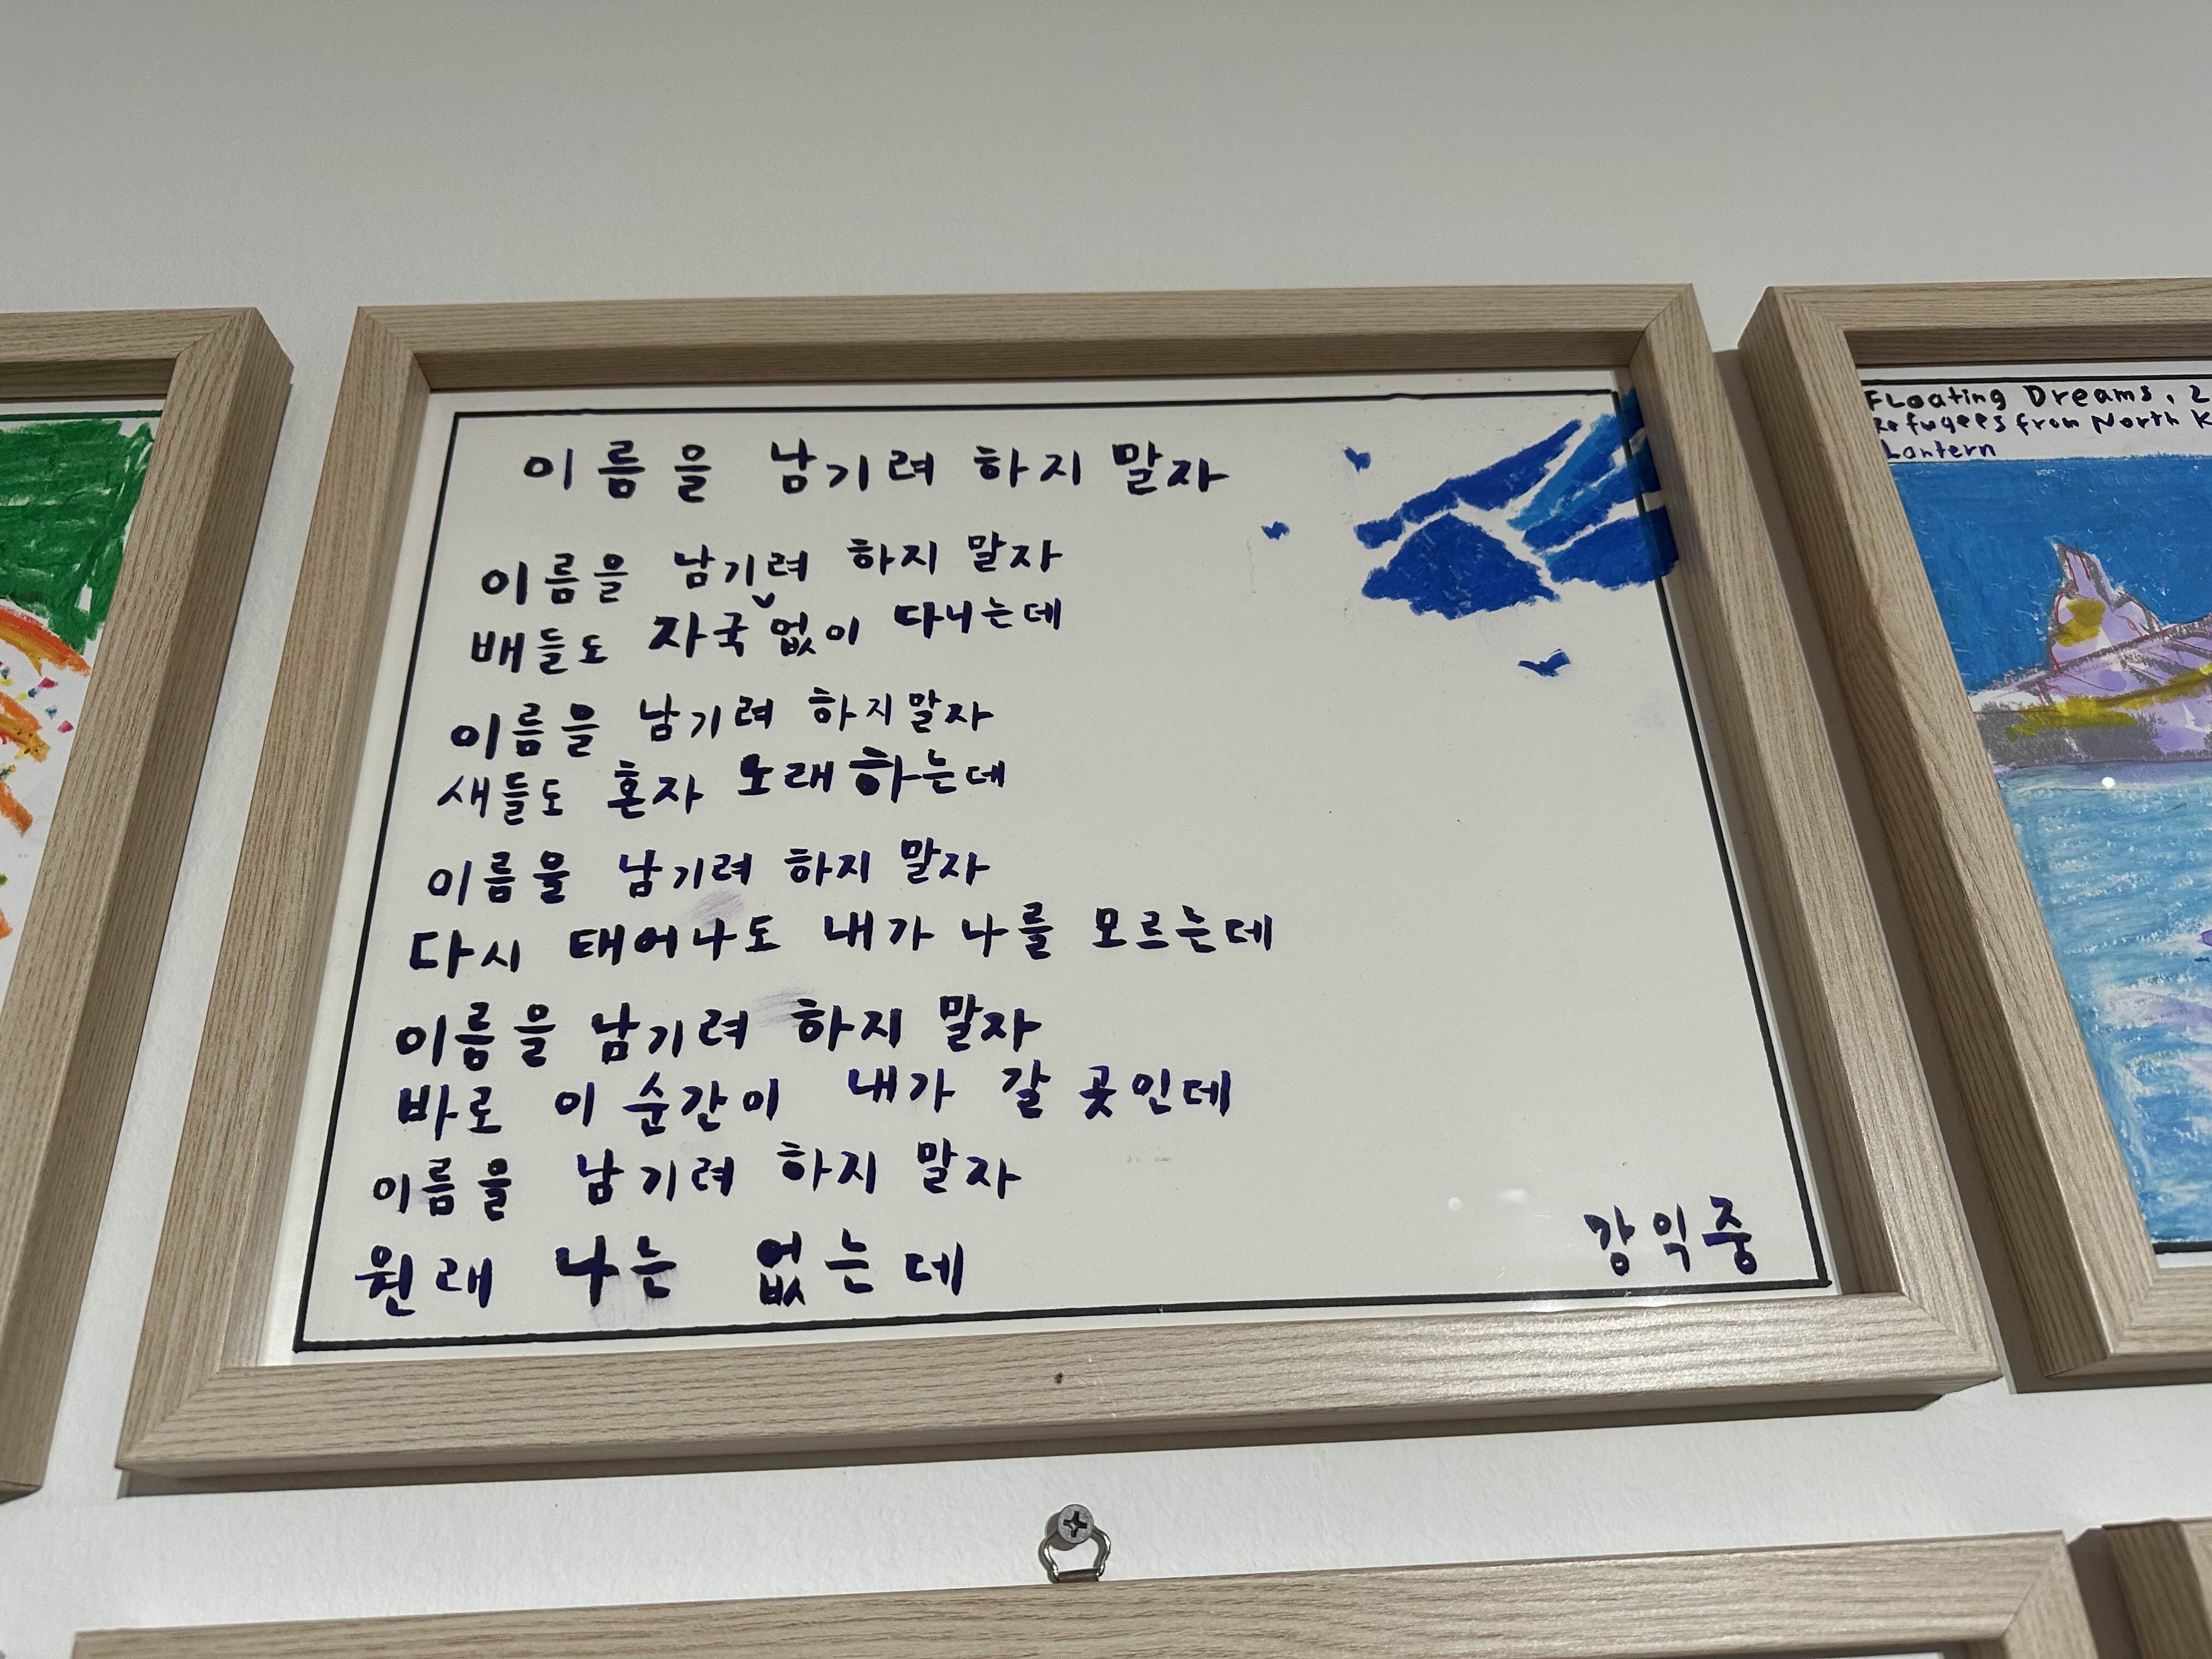 이름을 남기려 하지 말자
이름을 남기려 하지 말자
배들도 자국 없이 다니는데
이름을 남기려 하지말자
새들도 혼자 노래하는데
이름을 남기려 하지 말자
다시 태어나도 내가 나를 모르는데
이름을 남기려 하지 말자
바로 이 순간이 내가 갈 곳인데
이름을 남기려 하지 말자
원래 나는 없는데
강익중
Floating Dreams, 2
Refugees from North K
Lantern